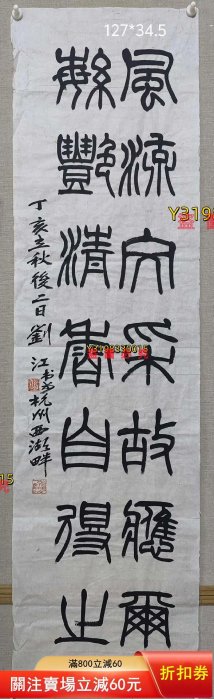 127*34.5
風流文采故應爾
繁豔清香自得之
丁亥立秋後二日劉江書於杭州西湖畔
Y319
15
滿800立減60
關注賣場立減60元
折扣券